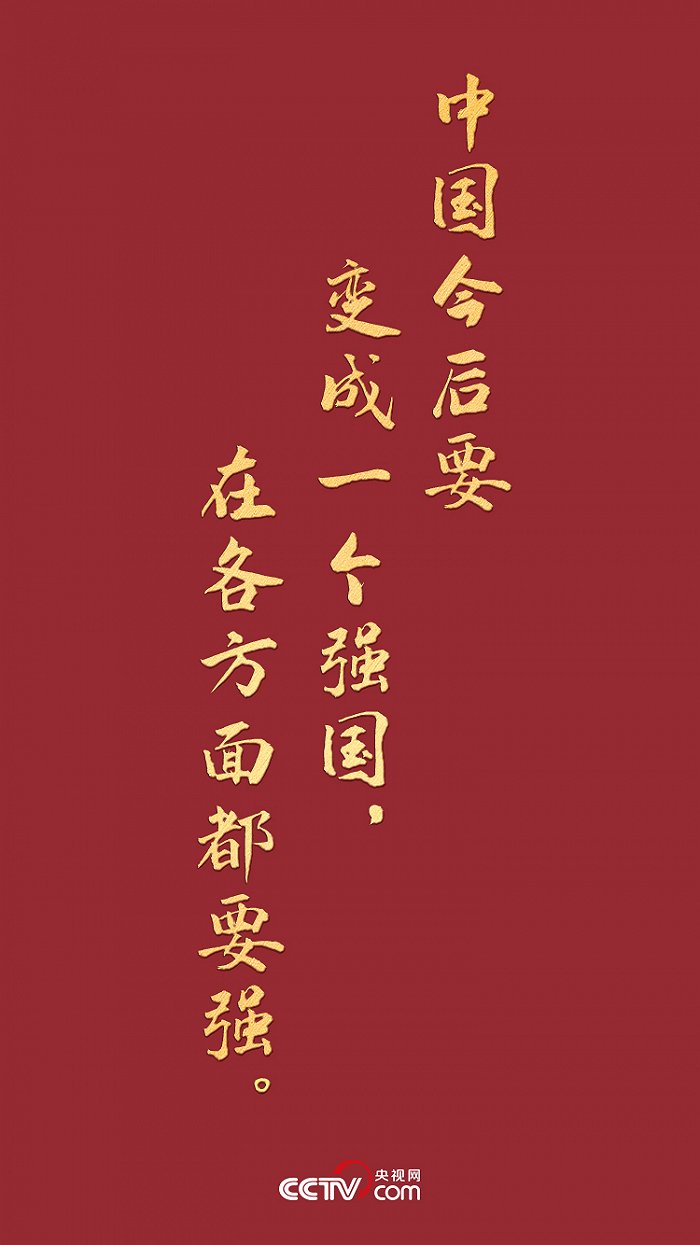 中国今后要
变成一个强国，
在各方面都要强。
CCTV.com 央视网